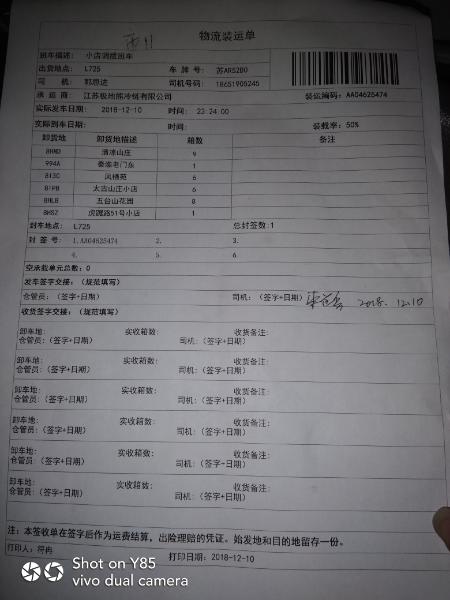 物流装运单
班车描述: 小店调拨班车
出货地点: L725 车 牌 号: 苏AR52B0
司 机: 郭思达 司机号码: 18651905245
承 运 商: 江苏极地熊冷链有限公司 装运编码: AA04625474
实际发车日期: 2018-12-10 时间: 23:24:00
实际到车日期: 时间: 装载率: 50%
卸货地 卸货地描述 箱数 备注
8HMD 清凉山庄 9
994A 秦淮老门东 1
8I3C 凤栖苑 6
8IPB 太古山庄小店 6
8HLB 五台山花园 8
8HSZ 虎踞路51号小店 1
封车地点: L725 总封签数:1
封 签 号: 1.AA04625474 2. 3.
4. 5. 6.
空承载单元总数: 0
发车签字交接: (规范填写)
仓管员: (签字+日期) 司机: (签字+日期) 2018. 12.10
收货签字交接: (规范填写)
卸车地: 实收箱数: 收货备注:
仓管员: (签字+日期) 司机: (签字+日期)
卸车地: 实收箱数: 收货备注:
仓管员: (签字+日期) 司机: (签字+日期)
卸车地: 实收箱数: 收货备注:
仓管员: (签字+日期) 司机: (签字+日期)
卸车地: 实收箱数: 收货备注:
仓管员: (签字+日期) 司机: (签字+日期)
卸车地: 实收箱数: 收货备注:
仓管员: (签字+日期) 司机: (签字+日期)
卸车地: 实收箱数: 收货备注:
仓管员: (签字+日期) 司机: (签字+日期)
注: 本签收单在签字后作为运费结算, 出险理赔的凭证。始发地和目的地留存一份。
打印人: 符冉 打印日期: 2018-12-10
Shot on Y85
vivo dual camera